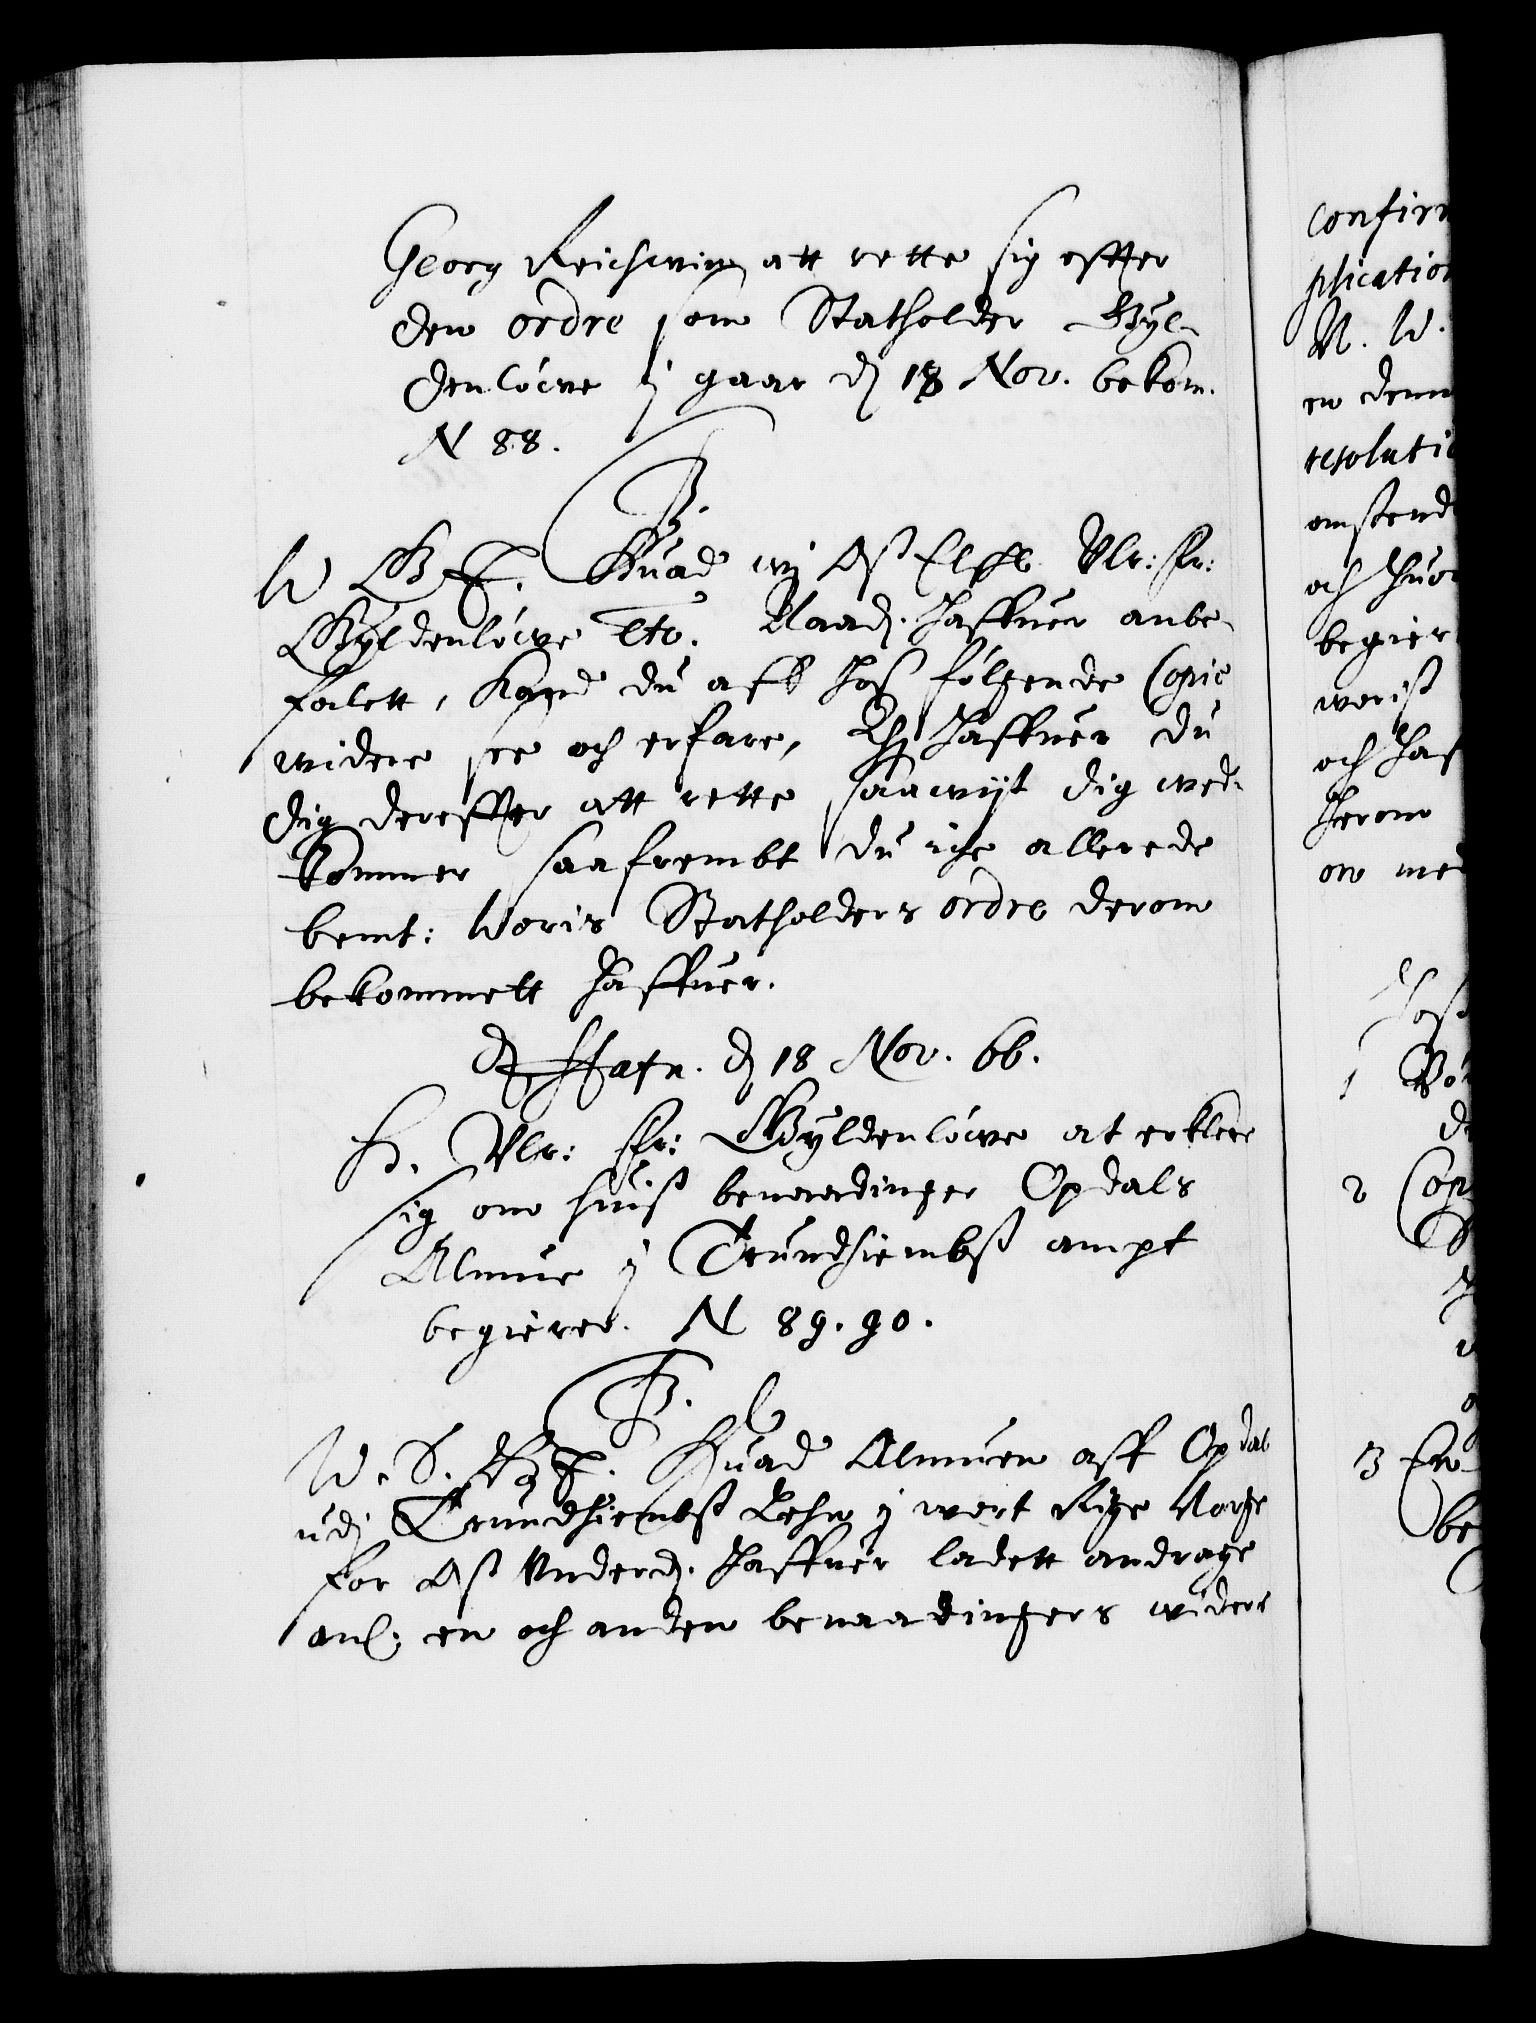 Georg Reichwein att rette sig effter
den ordre som Statholder Gyl-
denlöwe j gaar dj 18 Nov. bekom.
N 88.
B.
W G T. Huad wj Oß Elskl Vlr: fr:
Gyldenlöwe etc. Naadj. haffuer anbe-
falett, kand du aff hos fölgende Copie
widere see och erfare, haffuer du
dig dereffter att rette saawijt dig wed-
kommer saafrembt du iche allerede
bemt: Woris Statholders ordre derom
bekommett haffuer.
Hafn. dj 18 Nov. 66.
H. Vlr: fr: Gyldenlöwe at erklere
sig om huis benaadinger Opdals
Almue j Trundhiembß ampt
begierer. N 89. 90.
B.
W. S. G T. Huad Almuen aff Opdal
udj Trundhiembß Lehn j wort Rige Norge
for Oß Underdj. haffuer ladett andrage
anl: en och anden benaadingers widere
confirm
plication
N. W.
en denn
resolutio
omstend
och huor
begier
woriß
och haf
herom
on med
1
2 Cop
3 En
be